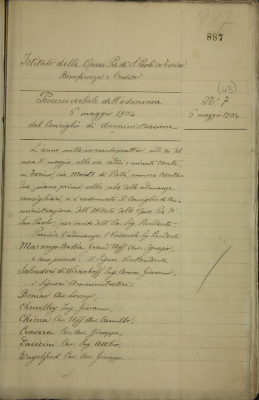 887
Istituto delle Opere Pie di S. Paolo in Torino
Beneficenza e Credito
Processo verbale di Radunanza
6 maggio 1904
del Consiglio di Amministrazione
(43)
N.° 7
6 maggio 1904
L'anno millenovecentoquattro addì sei del
mese di maggio, alle ore
in Torino, via Monte di Pietà, numero trenta
due, piano primo nella sala delle adunanze
consigliari, si è radunato il Consiglio di Am
ministrazione dell'Istituto delle Opere Pie di
San Paolo, per invito dell' Presidente
Presiede l'adunanza il Vicepresidente
Marsengo-Bastia Ignazio
e sono presenti i Signori
Salvadori di Wiesenhoff Ing. Comm. Giacomo
i Signori Amministratori:
Bonino Av. Lorenzo,
Chevalley Ing. Giovanni,
Chiesia Cav. Uff. Av. Camillo,
Craizza Cav. Av. Giuseppe,
Cav. Ing. Attilio,
Engelfred Cav. Av. Giuseppe,